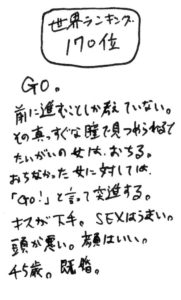 世界ランキング
170位
GO。
前に進むことしか考えていない。
その真、すぐな瞳で見つめられると
たいがいの女は、おちる。
おちなかった女に対しては、
「GO!」と言って突進する。
キスが下手。SEXはうまい。
頭が悪い。顔はいい。
45歳。既婚。